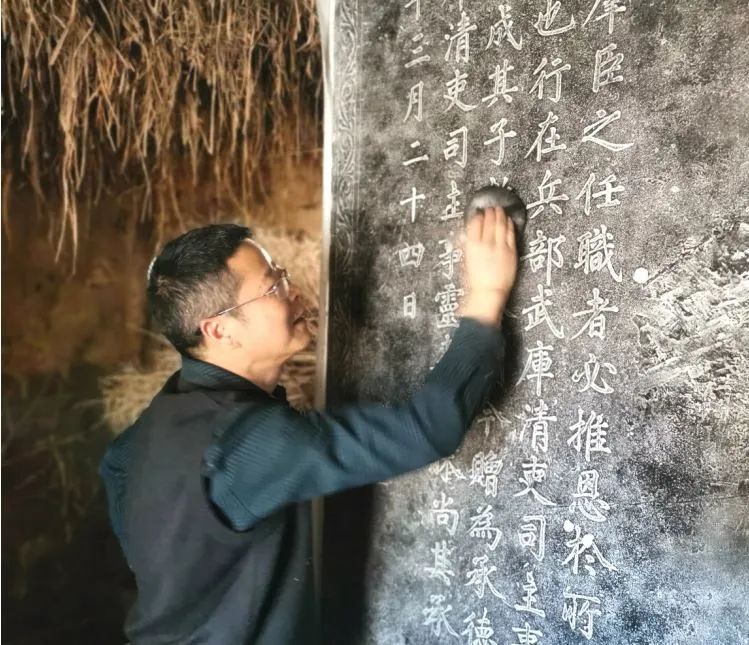 臣之任職者必推恩於所
也行在兵部武庫清吏司主事
成其子贈為承德
清吏司主事靈尚其承
三月二十四日